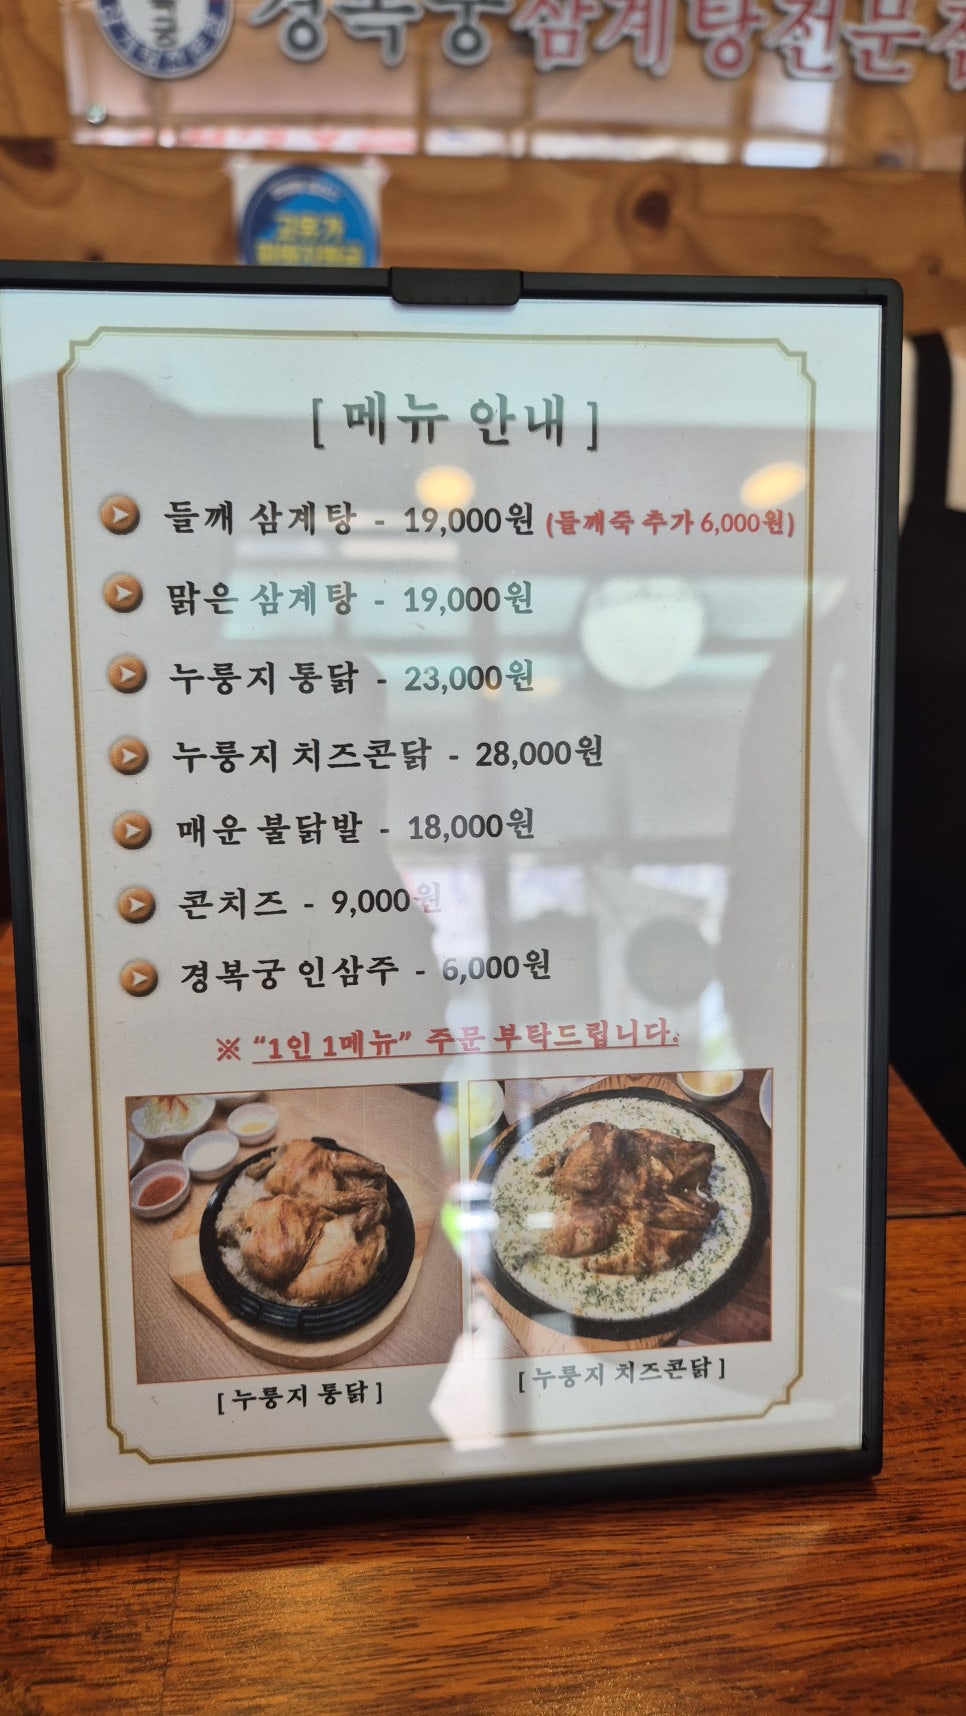 경복궁삼계탕전문점
고유가
[ 메뉴 안내 ]
들깨 삼계탕 - 19,000원 (들깨죽 추가 6,000원)
맑은 삼계탕 - 19,000원
누룽지 통닭 - 23,000원
누룽지 치즈콘닭 - 28,000원
매운 불닭발 - 18,000원
콘치즈 - 9,000원
경복궁 인삼주 - 6,000원
※ “1인 1메뉴” 주문 부탁드립니다.
[ 누룽지 통닭 ]
[ 누룽지 치즈콘닭 ]